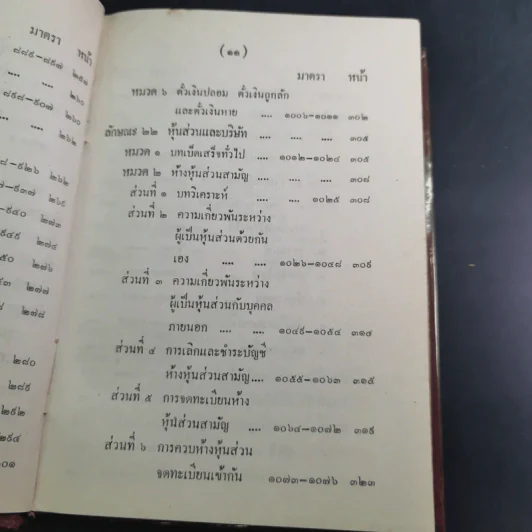 มาตรา หน้า
๘๘๙-๘๙๗ ๒๕๗
.... .... ๒๖๐
๘๙๘-๙๐๗ ๒๖๐
(๑๑)
มาตรา หน้า
หมวด ๖ ตั๋วเงินปลอม ตั๋วเงินถูกลัก
และตั๋วเงินหาย .... ๑๐๐๖-๑๐๑๑ ๓๐๒
ลักษณะ ๒๒ หุ้นส่วนและบริษัท .... .... .... ๓๐๕
หมวด ๑ บทเบ็ดเสร็จทั่วไป .... ๑๐๑๒-๑๐๒๔ ๓๐๕
หมวด ๒ ห้างหุ้นส่วนสามัญ .... .... .... ๓๐๘
ส่วนที่ ๑ บทวิเคราะห์ .... .... ๑๐๒๕ ๓๐๘
ส่วนที่ ๒ ความเกี่ยวพันระหว่าง
ผู้เป็นหุ้นส่วนด้วยกัน
เอง .... .... ๑๐๒๖-๑๐๔๘ ๓๐๙
ส่วนที่ ๓ ความเกี่ยวพันระหว่าง
ผู้เป็นหุ้นส่วนกับบุคคล
ภายนอก .... .... ๑๐๔๙-๑๐๕๔ ๓๑๔
ส่วนที่ ๔ การเลิกและชำระบัญชี
ห้างหุ้นส่วนสามัญ.... ๑๐๕๕-๑๐๖๓ ๓๑๕
ส่วนที่ ๕ การจดทะเบียนห้าง
หุ้นส่วนสามัญ .... ๑๐๖๔-๑๐๗๒ ๓๑๙
ส่วนที่ ๖ การควบห้างหุ้นส่วน
จดทะเบียนเข้ากัน ๑๐๗๓-๑๐๗๖ ๓๒๓